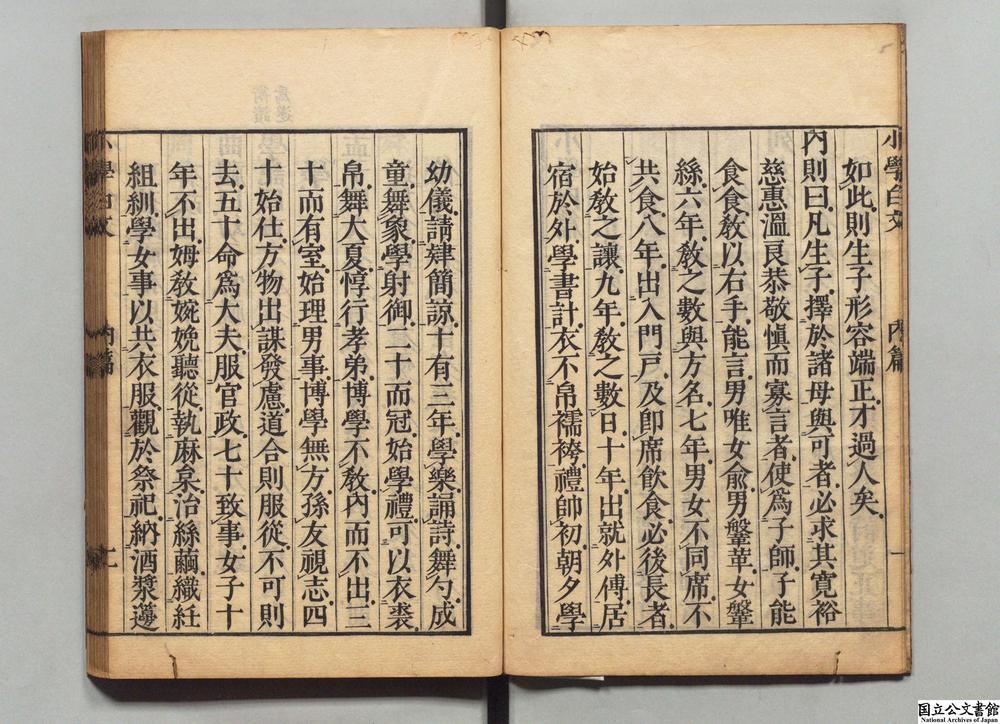 小學白文 內篇 一
如此則生子形容端正才過人矣
內則曰凡生子擇於諸母與可者必求其寬裕
慈惠溫良恭敬愼而寡言者使爲子師子能
食食敎以右手能言男唯女兪男鞶革女鞶
絲六年敎之數與方名七年男女不同席不
共食八年出入門戸及卽席飮食必後長者
始敎之讓九年敎之數日十年出就外傅居
宿於外學書計衣不帛襦袴禮帥初朝夕學
幼儀請肄簡諒十有三年學樂誦詩舞勺成
童舞象學射御二十而冠始學禮可以衣裘
帛舞大夏惇行孝弟博學不敎內而不出三
十而有室始理男事博學無方孫友視志四
十始仕方物出謀發慮道合則服從不可則
去五十命爲大夫服官政七十致事女子十
年不出姆敎婉娩聽從執麻枲治絲繭織紝
組紃學女事以共衣服觀於祭祀納酒漿籩
小學白文 內篇
国立公文書館
National Archives of Japan